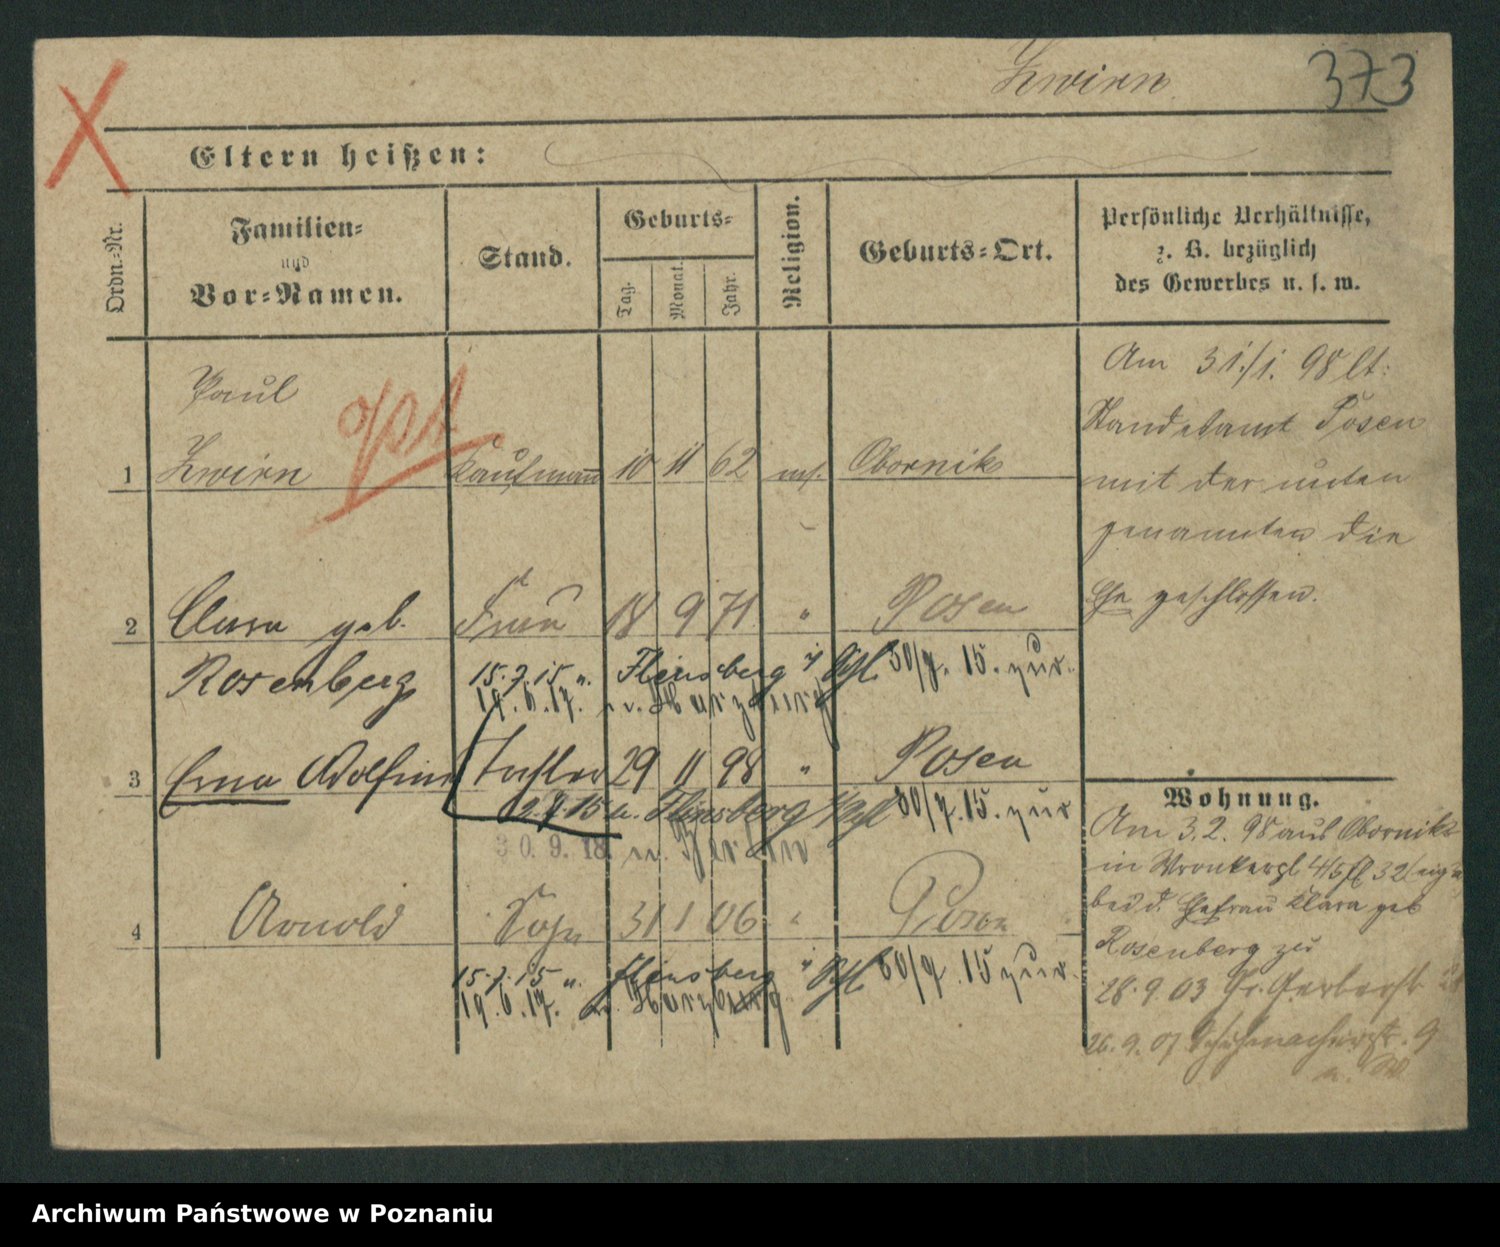 Zwirn 373
Eltern heißen:
Ordn.-Nr.
Familien-
und
Vor-Namen.
Stand.
Geburts-
Tag. Monat. Jahr.
Religion.
Geburts-Ort.
Persönliche Verhältnisse,
z. B. bezüglich
des Gewerbes u. s. w.
Paul
1 Zwirn Kaufmann 10 11 62 mos. Obornik
opt
Am 31./1. 98 lt:
Standesamt Posen
mit der unten
genannten die
Ehe geschlossen.
2 Clara geb. Frau 18 9 71 " Posen
Rosenberg 15.7.15 n. Flinsberg i/ Schl. 30/7. 15. zur.
19.6.17. n. Harzburg
3 Erna Wolfine Tochter 29 11 98 " Posen
2.7.15 n. Flinsberg i/Schl 30/7.15. zur
30.9.18. n. Berlin
4 Arnold Sohn 31 1 06 " Posen
15.7.15 n. Flinsberg i/ Schl 30/7.15 zur.
19.6.17. n. Harzburg
Wohnung.
Am 3.2.98 aus Obornik
in Wronkerpl 4/5
bei d. Ehefrau Klara geb
Rosenberg zu
28.9.03 Gr. Gerberstr
26.9.07 Schuhmacherstr. 9
Archiwum Państwowe w Poznaniu